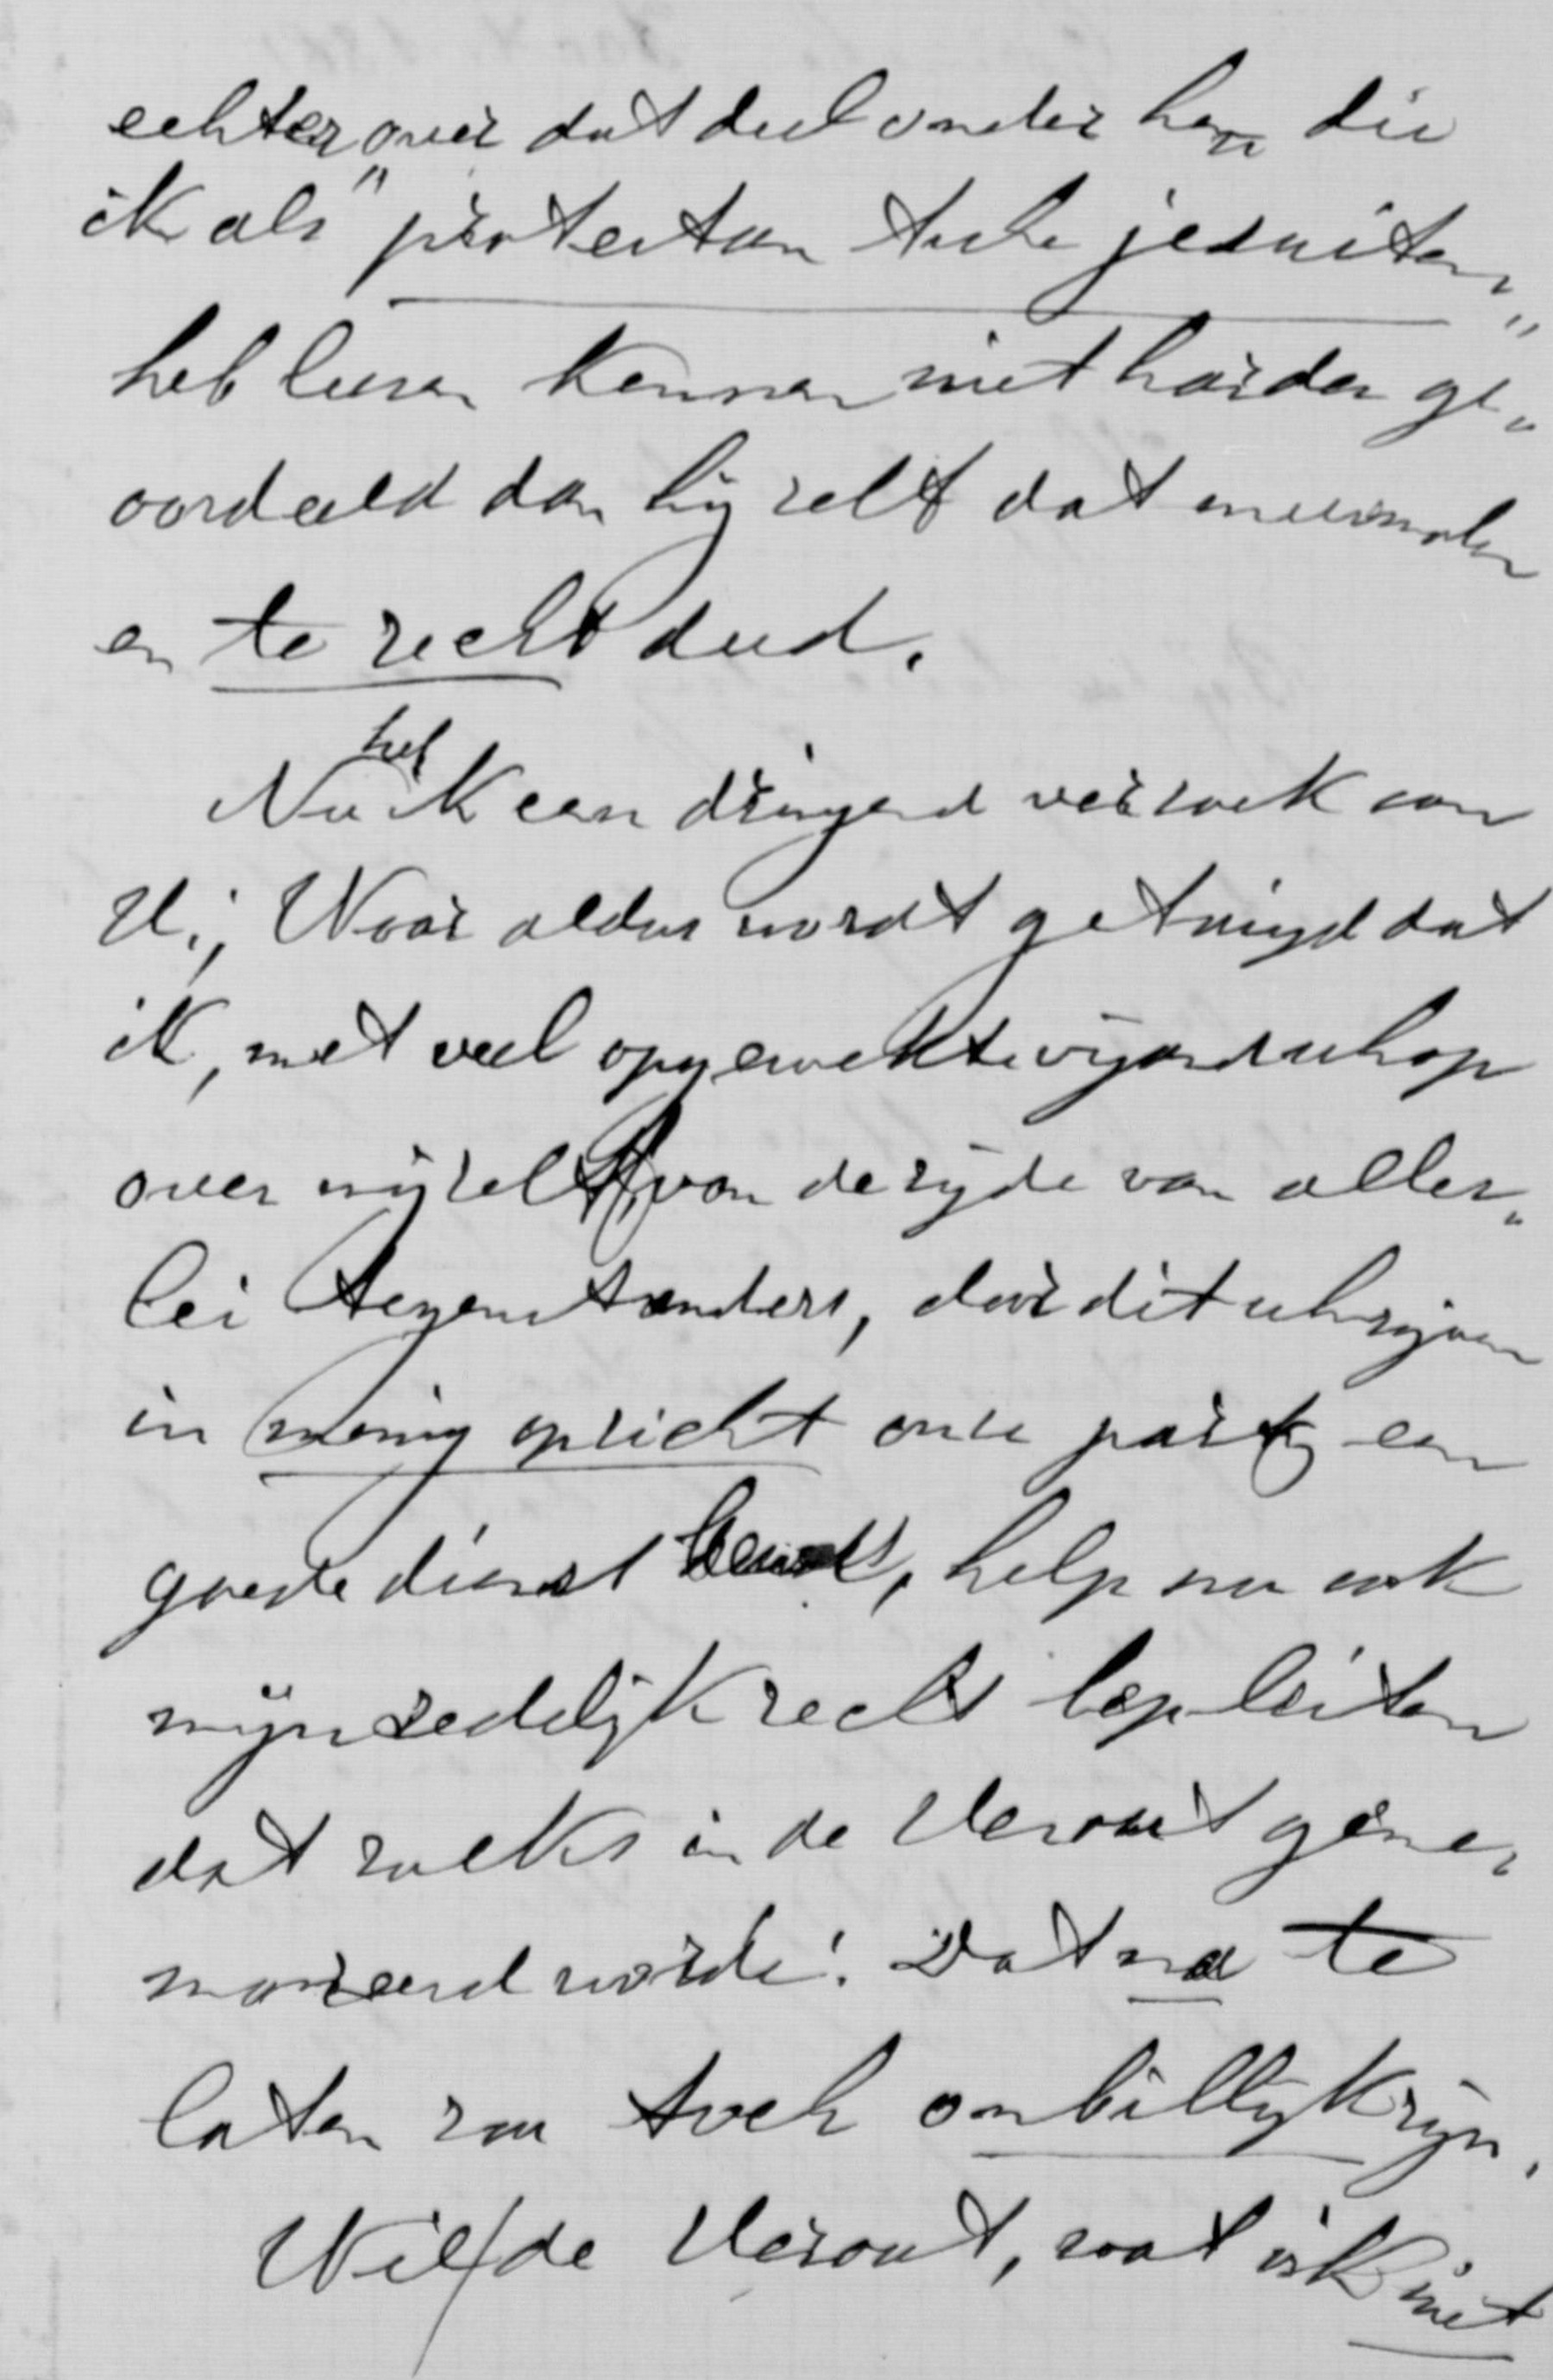 echter over dat deel onder hen die
ik als "protestantsche jesuiten"
heb leeren kennen niet harder ge„
oordeeld dan hij zelf dat meermalen
en te recht deed.
Nu heb ik een dringend verzoek aan
U.; Waar aldus wordt getuigd dat
ik, met veel opgewekte vijandschap
over mijzelf van de zijde van aller„
lei tegenstanders, door dit schrijven
in menig opzicht onze partij een
goede dienst bewees, help nu ook
mijn zedelijk recht bepleiten
dat zulks in de Heraut gene„
moreerd worde! Dat na te
laten zou toch onbillijk zijn.
Wil de Heraut, wat ik niet